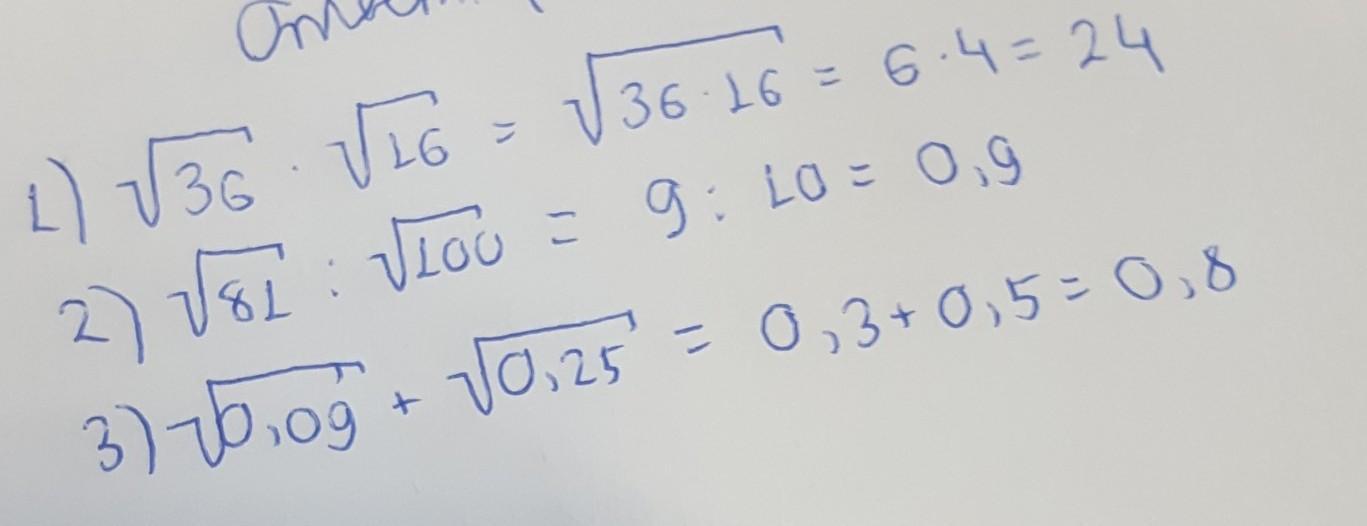 1) √36 · √16 = √36 · 16 = 6 · 4 = 24
2) √81 : √100 = 9 : 10 = 0,9
3) √0,09 + √0,25 = 0,3 + 0,5 = 0,8